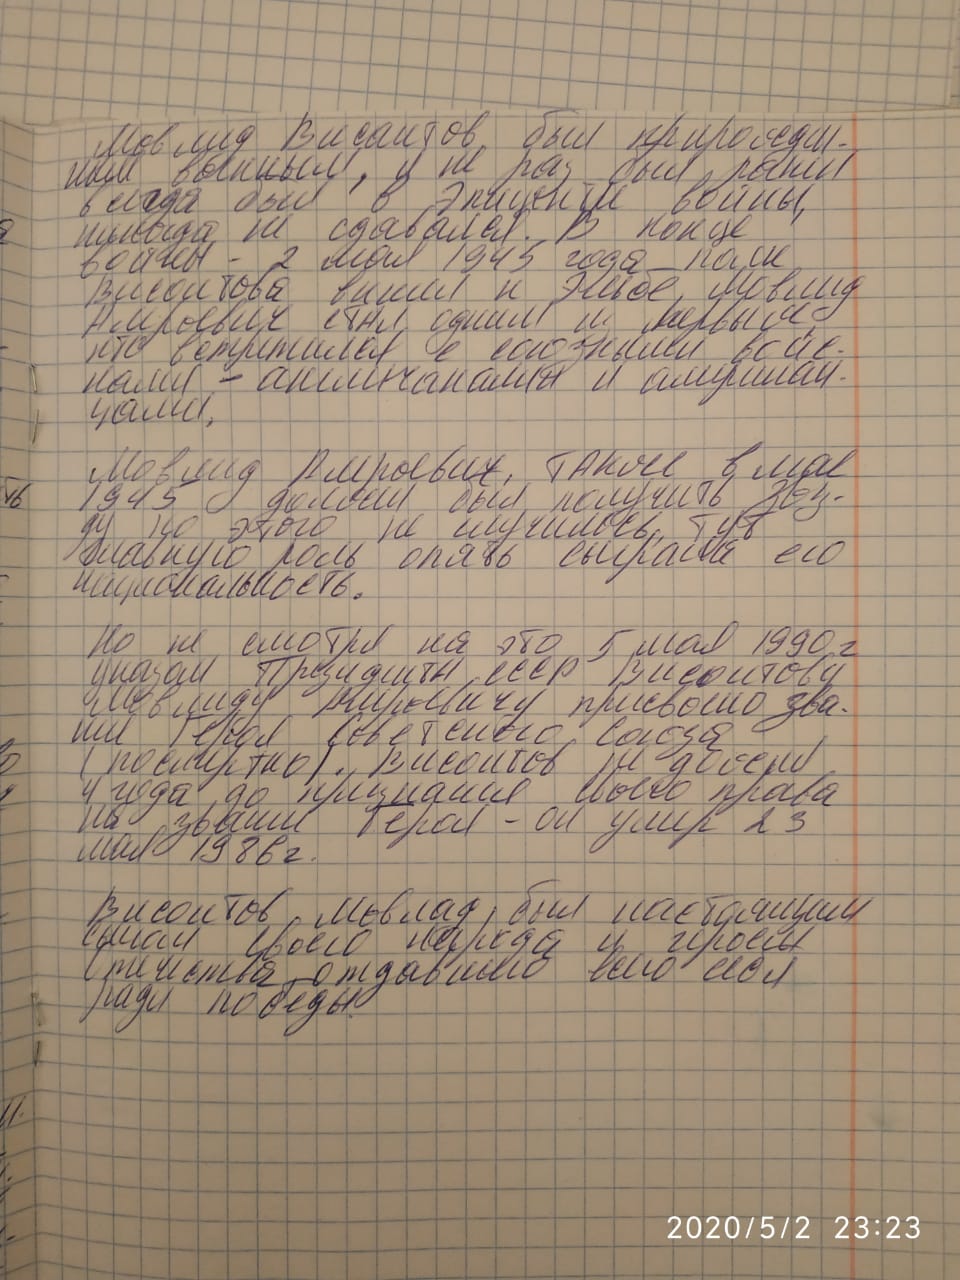 Мовлид Висаитов был прирожден-
ным военным, и не раз был ранен
всегда был в эпицентре войны,
никогда не сдавался. В конце
войны - 2 мая 1945 года полк
Висаитова вышел к Эльбе, Мовлид
Амроевич стал одним из первых,
кто встретился с союзными войс-
ками - англичанами и американ-
цами.
Мовлид Амроевич, также в мае
1945 должен был получить Звез-
ду но этого не случилось, тут
главную роль опять сыграла его
национальность.
Но не смотря на это 5 мая 1990г
указом Президента СССР Висаитову
Мовлиду Амроевичу присвоено зва-
ние Героя Советского Союза
(посмертно). Висаитов не дожил
4 года до признания своего права
на звание Героя - он умер 23
мая 1986г.
Висаитов Мовлад был настоящим
сыном своего народа и героем
Отечества отдавшего всего себя
ради победы.
2020/5/2 23:23